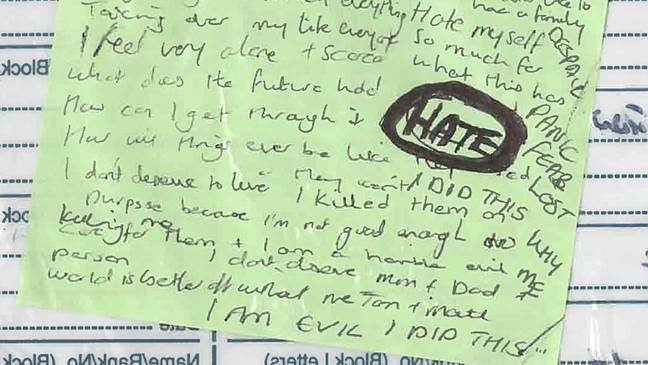 have a family
Taking over my life everyday Hate myself
I feel very alone + scared So much for DESPAIR
what does the future hold what this has
How can I get through it HATE PANIC
How will things ever be like FEAR
I don't deserve to live They won't I DID THIS LOST
I killed them on
purpose because I'm not good enough WHY
care for them + I am a horrible evil ME
person I don't deserve mum + Dad
world is better off without me
I AM EVIL I DID THIS
Name/Bank/No. (Block
No. (Block Letters)
(Block
(Block